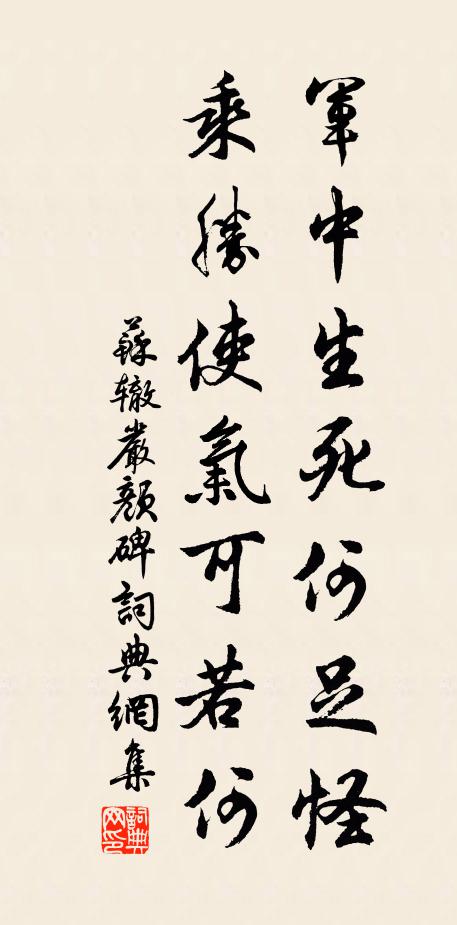 軍中生死何足怪
乘勝使氣可若何
蘇轍嚴顏碑詞典網集
詞典
网印